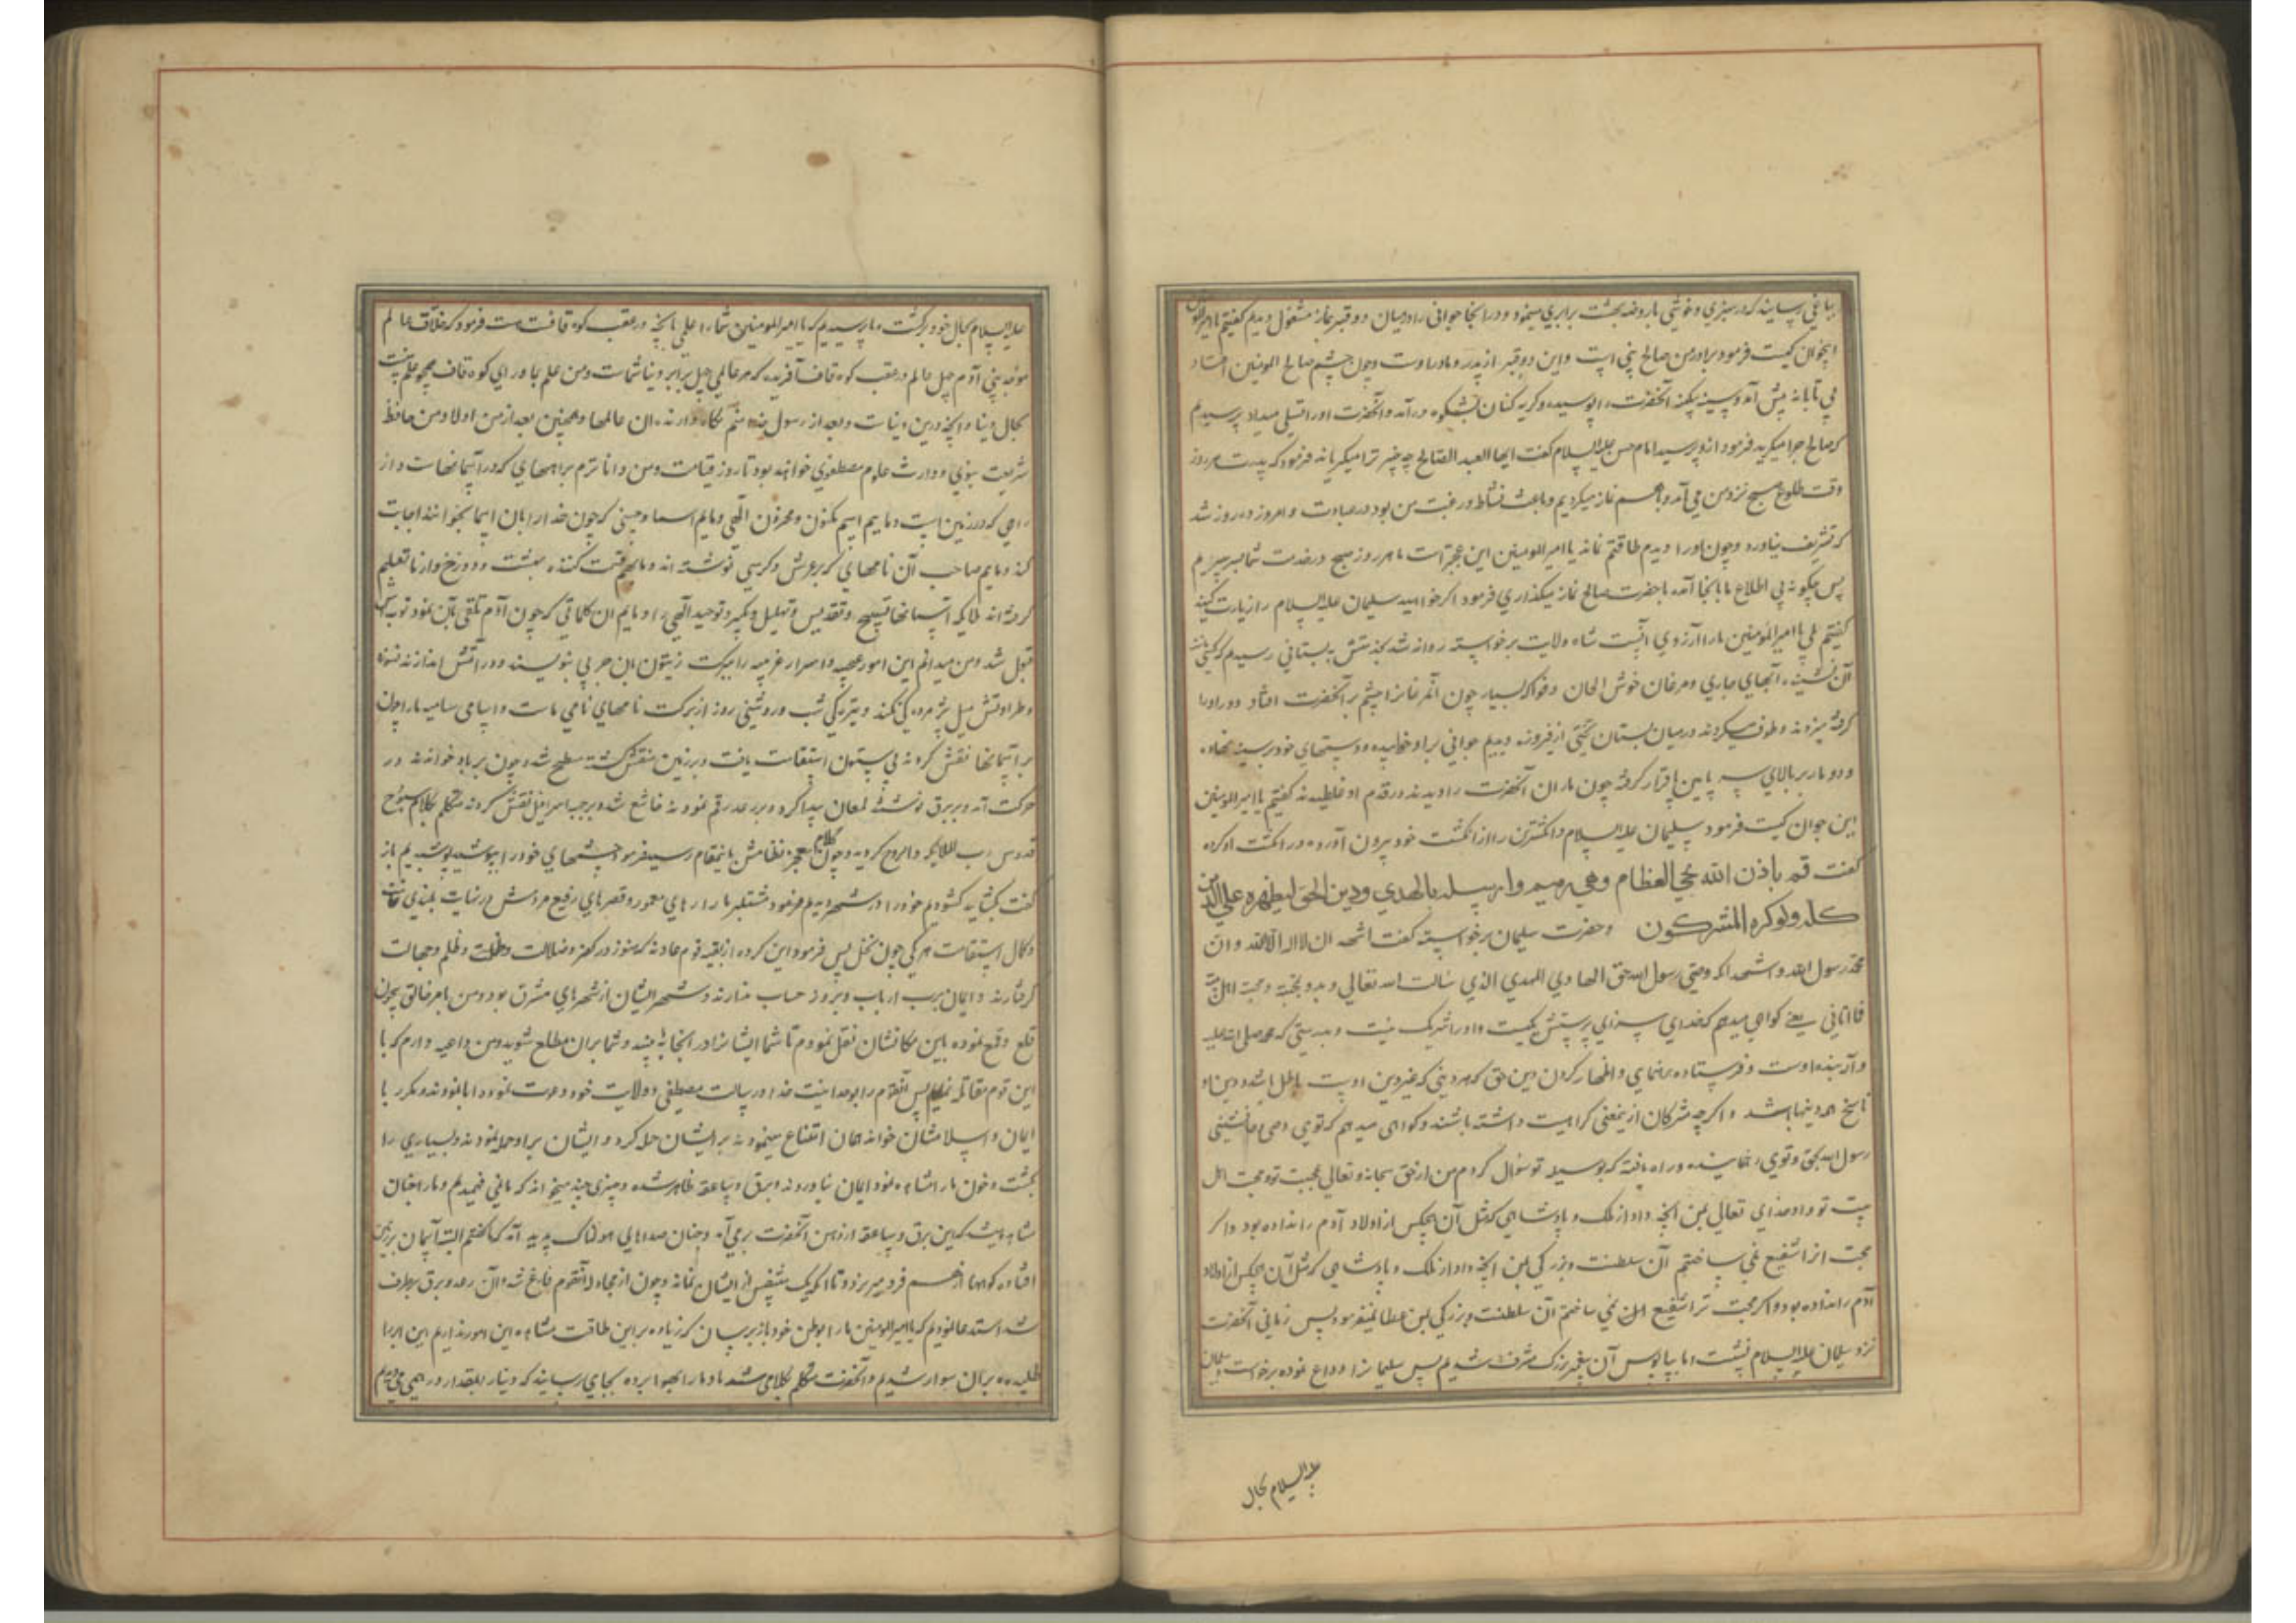 بباغی رسانید که در سبزی و خوشی با روضه بهشت برابری مینمود و در انجا جوانی را در میان دو قبر بنماز مشغول دیدم گفتیم یا امیرالمؤمنین
اینجوان کیست فرمود برادر من صالح نبی است و این دو قبر از پدر و مادر اوست و چون چشم صالح بامیر المومنین افتاد
بی تابانه پیش آمد و سینه بیکینه آنحضرت را بوسید و گریه کنان بشکوه درآمد و آنحضرت او را تسلی میداد پرسیدم
که صالح چرا میگرید فرمود ازو پرسید امام حسن علیه السلام گفت ایها العبد الصالح چه چیز ترا میگریاند فرمود که پدرت هر روز
وقت طلوع صبح نزد من می آمد و باهم نماز میکردیم و باعث نشاط و رغبت من بود در عبادت و امروز ده روز شد
که تشریف نیاورد و چون او را دیدم طاقتم نماند یا امیر المومنین این عجبتر است ما هر روز صبح در خدمت شما بسر میبریم
پس چگونه بی اطلاع ما بانجا آمده با حضرت صالح نماز میگذاری فرمود اگر خواهید سلیمان علیه السلام را زیارت کنید
گفتیم بلی یا امیر المومنین ما را آرزوی آنست شاه ولایت برخواسته روانه شد بخدمتش به بستانی رسیدم که کسی مثل
آن نشنیده آبهای جاری و مرغان خوش الحان و فواکه بسیار چون آنمرغانرا چشم بر آنحضرت افتاد دور او را
گرفته میزدند و طوف میکردند در میان بستان تختی از فیروزه دیدیم جوانی بر او خوابیده و دستهای خود بر سینه نهاده
و دو مار بر بالای سر و پایین پا قرار گرفته چون ماران آنحضرت را دیدند در قدم او غلطیدند گفتیم یا امیر المومنین
این جوان کیست فرمود سلیمان علیه السلام و انگشترین را از انگشت خود بیرون آورده در انگشت او کرده
گفت قم باذن الله یحی العظام وهی رمیم وارسله بالهدی ودین الحق لیظهره علی الدین
کله ولو کره المشرکون و حضرت سلیمان برخواسته گفت اشهد ان لا اله الا الله وان
محمد رسول الله و اشهد انک وصی رسول الله حق الهادی المهدی الذی سالت الله تعالی
فاتانی یعنی گواهی میدهم که خدای سزای پرستش یکیست و او را شریک نیست و بدرستی که محمد صلی الله علیه
و آله بنده اوست و فرستاده برهنمای و اظهار کردن دین حق که هر دینی که غیر دین اوست باطل باشد و دین او
ناسخ همه دینها باشد و اگرچه مشرکان از ینمعنی کراهیت داشته باشند و گواهی میدهم که تویی وصی و جانشینی
رسول الله بحق و تویی رهنماینده و راه یافته که بوسیله تو سؤال کردم من از حق سبحانه و تعالی بمحبت تو و محبت اهل
بیت تو و داد خدای تعالی بمن آنچه داد از ملک و پادشاهی که مثل آن بهیچکس از اولاد آدم را نداده بود و اگر
محبت ترا شفیع نمی ساختم آن سلطنت و بزرگی بمن آنچه داد از ملک و پادشاهی که مثل آن بهیچکس از اولاد
آدم را نداده بود و اگر محبت ترا شفیع نمی ساختم آن سلطنت و بزرگی بمن عطا نمیفرمود پس زمانی آنحضرت
نزد سلیمان علیه السلام نشست و ما بپابوس آن پیغمبر بزرگ مشرف شدیم پس سلیمانرا وداع نموده برخواست و سلیمان
علیه السلام بحال
علیه السلام بحال خود برگشت و ما پرسیدیم که یا امیر المومنین شما را علمی بانچه در عقب کوه قافست هست فرمود که خلاق عالم
موجد بنی آدم چهل عالم در عقب کوه قاف آفریده که هر عالمی چهل برابر دنیا شماست و من علم بماورای کوه قاف همچو علم منست
بحال دنیا و آنچه درین دنیاست و بعد از رسول خدا منم نگاه دارنده ان عالمها و همچنین بعد از من اولاد من حافظ
شریعت نبوی و وارث علوم مصطفوی خواهند بود تا روز قیامت و من داناترم براههای که در آسمانهاست و از
راهی که در زمین است و ماییم اسم مکنون و مخزون الهی و ماییم اسماء حسنی که چون خدا را بان اسما بخوانند اجابت
کند و ماییم صاحب آن نامهای که بر عرش و کرسی نوشته اند و ماییم قسمت کننده بهشت و دوزخ و از ما تعلیم
گرفته اند ملایکه آسمانها تسبیح و تقدیس و تهلیل و تکبیر و توحید الهی را و ماییم ان کلماتی که چون آدم تلقی بآن نمود توبه اش
قبول شد و من میدانم این امور عجیبه و اسرار غریبه را
و طراوتش میل پژمردگی نکند و بتیرگی شب و روشنی روز از برکت نامهای نامی ماست و اسامی سامیه ما را چون
بر آسمانها نقش کردند بی ستون استقامت یافت و بر زمین منقش گشته مسطح شد و چون بر باد خواندند در
حرکت آمد و بر برق نوشته لمعان پیدا کرد و بر رعد رقم نمودند خاشع شد و بر جبه اسرافیل نقش کردند متکلم بکلام سبوح
قدوس رب الملایکه والروح گردید و چون کلام معجز نظامش باینمقام رسید فرمود چشمهای خود را بپوشید پوشیدیم باز
گفت بگشایید گشودیم خود را در شهر دیدیم مشتمل بر بازارهای معمور و قصرهای رفیع مردمش در نهایت بلندی قامت
و کمال استقامت هر یکی چون نخل پس فرمود این گروه از بقیه قوم عادند که هنوز در کفر و ضلالت و ظلمت و ظلم و جهالت
گرفتارند و ایمان برب ارباب و بروز حساب ندارند و شهر ایشان از شهرهای مشرق بود و من بامر خالق بیچون
قلع و قمع نموده باین مکانشان نقل نمودم تا شما ایشانرا در انجا ببینید و شما بران مطلع شوید و من داعیه دارم که با
این قوم مقاتله نمایم پس آنقوم را بوحدانیت خدا و رسالت مصطفی و ولایت خود دعوت نمود و ابا نمودند و مکرر با
ایمان و اسلامشان خواند همان امتناع مینمودند بر ایشان حمله کرد و ایشان بر او حمله نمودند و بسیاری را
بکشت و چون ما را مشاهده نمود ایمان نیاوردند و برق و صاعقه ظاهر شده و چیزی چند میخواند که مانمی فهمیدیم و ما را چنان
مشاهده میشد که این برق و صاعقه از دهن آنحضرت برمی آمد و چنان صداهای هولناک پدید آمد که گفتیم البته آسمان بر زمین
افتاده کوهها از هم فرو میریزد و تا آنکه یک متنفس از ایشان نماند و چون از مجادله آنقوم فارغ شد و آن رعد و برق برطرف
شد استدعا نمودیم که یا امیر المومنین ما را بوطن خود باز برسان که زیاده بر این طاقت مشاهده این امور نداریم این ابر را
طلبیده بران سوار شدیم و آنحضرت متکلم بکلامی شد باد ما را بهوا برده بجای رسانید که دنیا را بمقدار درهمی می دیدم